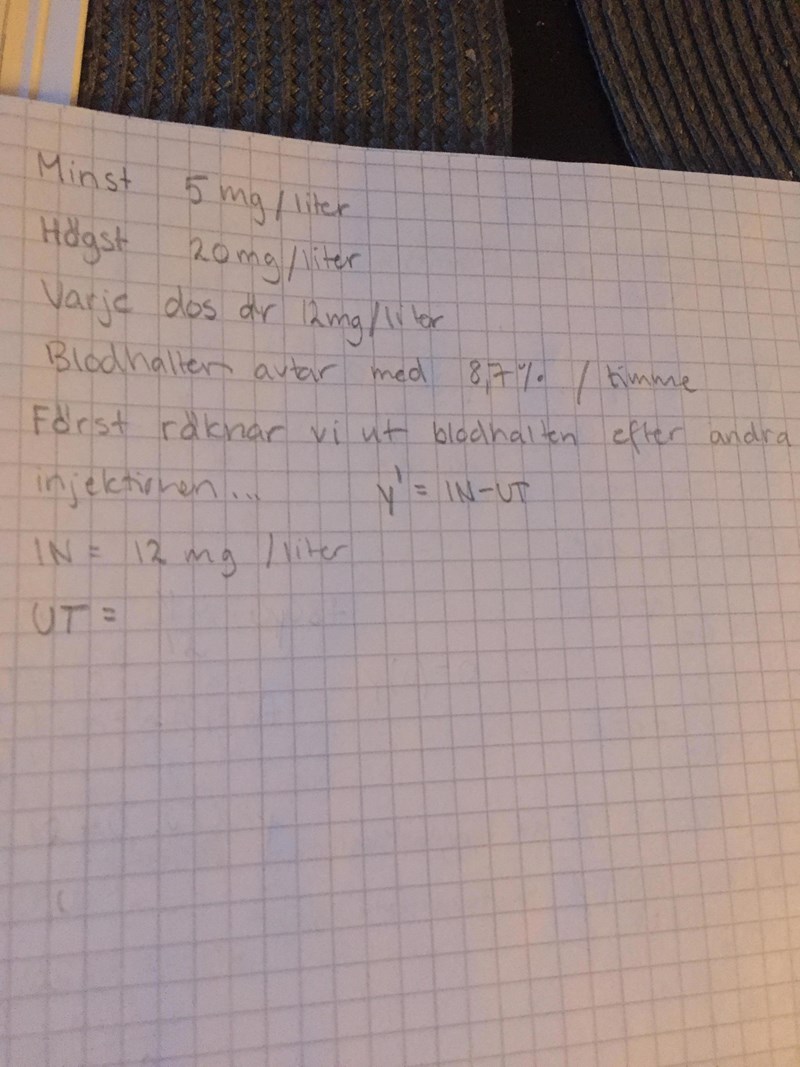 Minst 5 mg/liter
Högst 20mg/liter
Varje dos är 12mg/liter
Blodhalten avtar med 8,7% / timme
Först räknar vi ut blodhalten efter andra
injektionen... y' = IN-UT
IN = 12 mg /liter
UT =